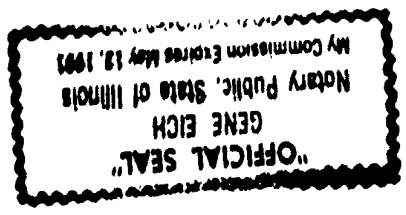 "OFFICIAL SEAL"
GENE EICH
Notary Public, State of Illinois
My Commission Expires May 13, 1991